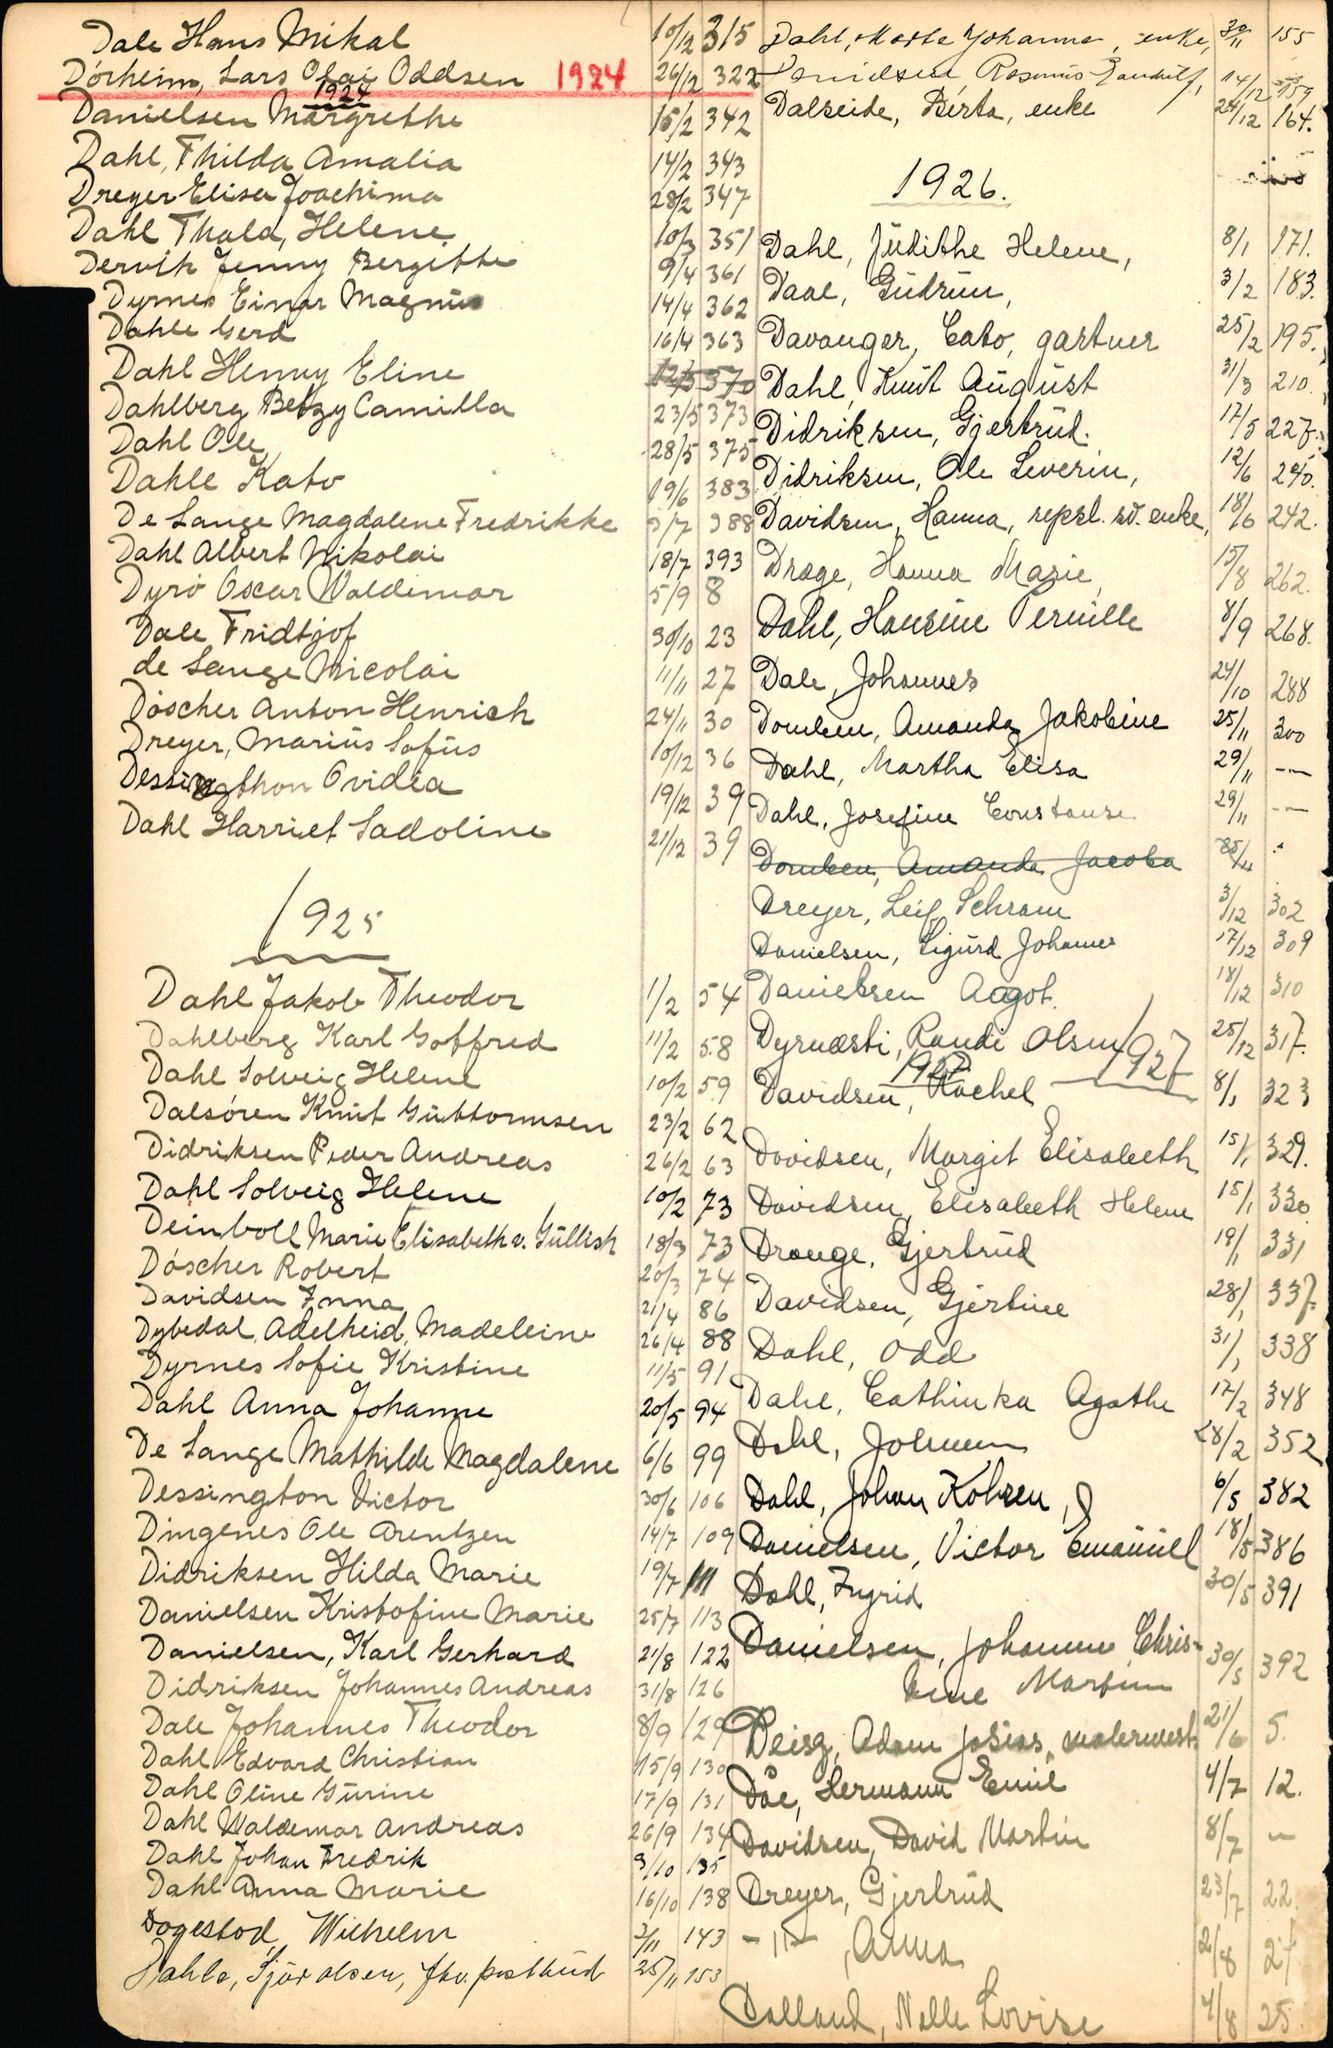 Dale Hans Mikal 10/12 315
Dörheim, Lars Olai Oddsen 1924 26/12 322
1924
Danielsen Margrethe 15/2 342
Dahl, Thilda Amalia 14/2 343
Dreyer Elisa Joachima 28/2 347
Dahl Thala, Helene 10/3 351
Dervik Jenny Bergitte 9/4 361
Dyrnes Einar Magnus 14/4 362
Dahle Gerd 16/4 363
Dahl Henny Eline 12/5 370
Dahlberg Betzy Camilla 23/5 373
Dahl Ole, 28/5 375
Dahle Kato 19/6 383
De Lange Magdalene Fredrikke 3/7 388
Dahl Albert Nikolai 18/7 393
Dyrö Oscar Waldemar 5/9 8
Dale Fridtjof 30/10 23
de Lange Nicolai 11/11 27
Döscher Anton Henrich 24/11 30
Dreyer, Marius Sofus 10/12 36
Dessingthon Ovidea 19/12 39
Dahl Harriet Sadoline 21/12 39
1925
Dahl Jakob Theodor 1/2 54
Dahlberg Karl Gotfred 11/2 58
Dahl Solveig Helene 10/2 59
Dalsören Knut Guttormsen 23/2 62
Didriksen Peder Andreas 26/2 63
Dahl Solveig Helene 10/2 73
Deinboll Marie Elisabeth v. Güllich 18/3 73
Döscher Robert 20/3 74
Davidsen Anna 21/4 86
Dybedal, Adelheid, Madeleine 26/4 88
Dyrnes Sofie Kristine 11/5 91
Dahl Anna Johanne 20/5 94
De Lange Mathilde Magdalene 6/6 99
Dessington Victor 30/6 106
Dingenes Ole Arentzen 14/7 109
Didriksen Hilda Marie 19/7 111
Danielsen Kristofine Marie 25/7 113
Danielsen, Karl Gerhard 21/8 122
Didriksen Johannes Andreas 31/8 126
Dale Johannes Theodor 8/9 129
Dahl Edvard Christian 15/9 130
Dahl Oline Gurine 17/9 131
Dahl Waldemar Andreas 26/9 134
Dahl Johan Fredrik 3/10 135
Dahl Anna Marie 16/10 138
Dogestad, Wilhelm 2/11 143
Dahle, Sjur Olsen, fhv. postbud 25/11 153
Dahl, Marta Johanna, enke, 30/11 155
Danielsen Rasmus 14/12 159
Dalseide, Berta, enke 24/12 164.
1926.
Dahl, Judithe Helene, 8/1 171.
Daae, Gudrun, 3/2 183.
Davanger, Cato, gartner 25/2 195.
Dahl, Knut August 31/3 210.
Didriksen, Gjertrud. 17/5 227.
Didriksen, Ole Severin, 12/6 240.
Davidsen, Hanna, repsl. sv. enke, 18/6 242.
Drage, Hanna Marie, 15/8 262.
Dahl, Hansine Pernille 8/9 268.
Dale, Johannes 24/10 288
Domben, Amanda Jakobine 25/11 300
Dahl, Martha Elisa 29/11 —
Dahl, Josefine Constanse 29/11 —
Domben, Amanda Jacoba 25/11
Dreyer, Leif Schram 3/12 302
Danielsen, Sigurd Johannes 17/12 309
Danielsen Aagot. 18/12 310
Dyrnæsti, Randi Olsen 25/12 317.
1927 1927
Davidsen, Rachel 8/1 323
Davidsen, Margit Elisabeth 15/1 329.
Davidsen, Elisabeth Helene 15/1 330
Drange, Gjertrud 19/1 331
Davidsen, Gjertine 28/1 337.
Dahl, Odd 31/1 338
Dahl, Cathinka Agathe 17/2 348
Dahl, 28/2 352
Dahl, Johan Kohren, J 6/5 382
Danielsen, Victor Emanuel 18/5 386
Dahl, Ingrid 30/5 391
Danielsen, Johanne Chris-
tine Martine 30/5 392
Deisz, Adam Josias, malermest. 21/6 5.
Dåe, Hermann Emil 4/7 12.
Davidsen, David Martin 8/7 —
Dreyer, Gjertrud 23/7 22
— " — , Anna 2/8 24
Dalland, Nelle Lovise 4/8 25.